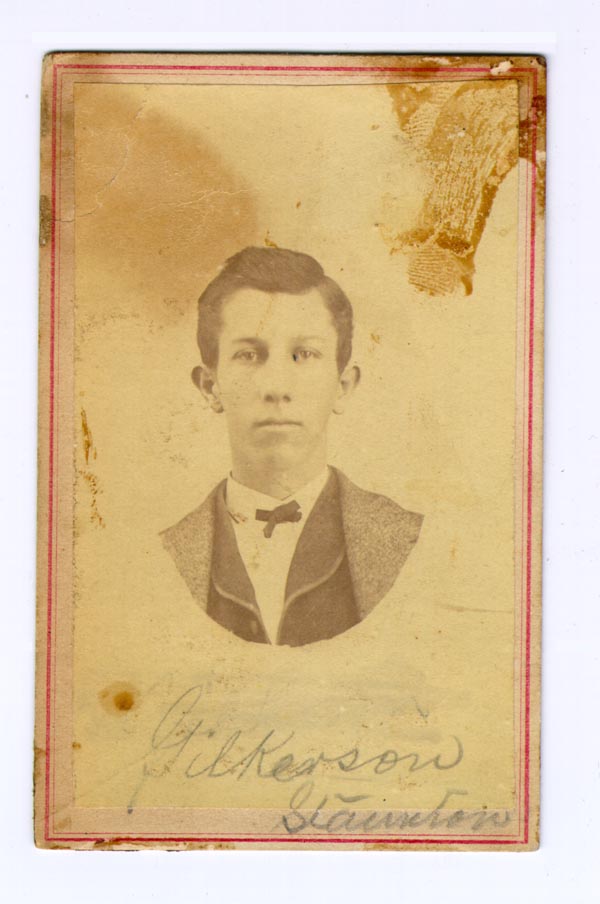 Gilkerson
Staunton